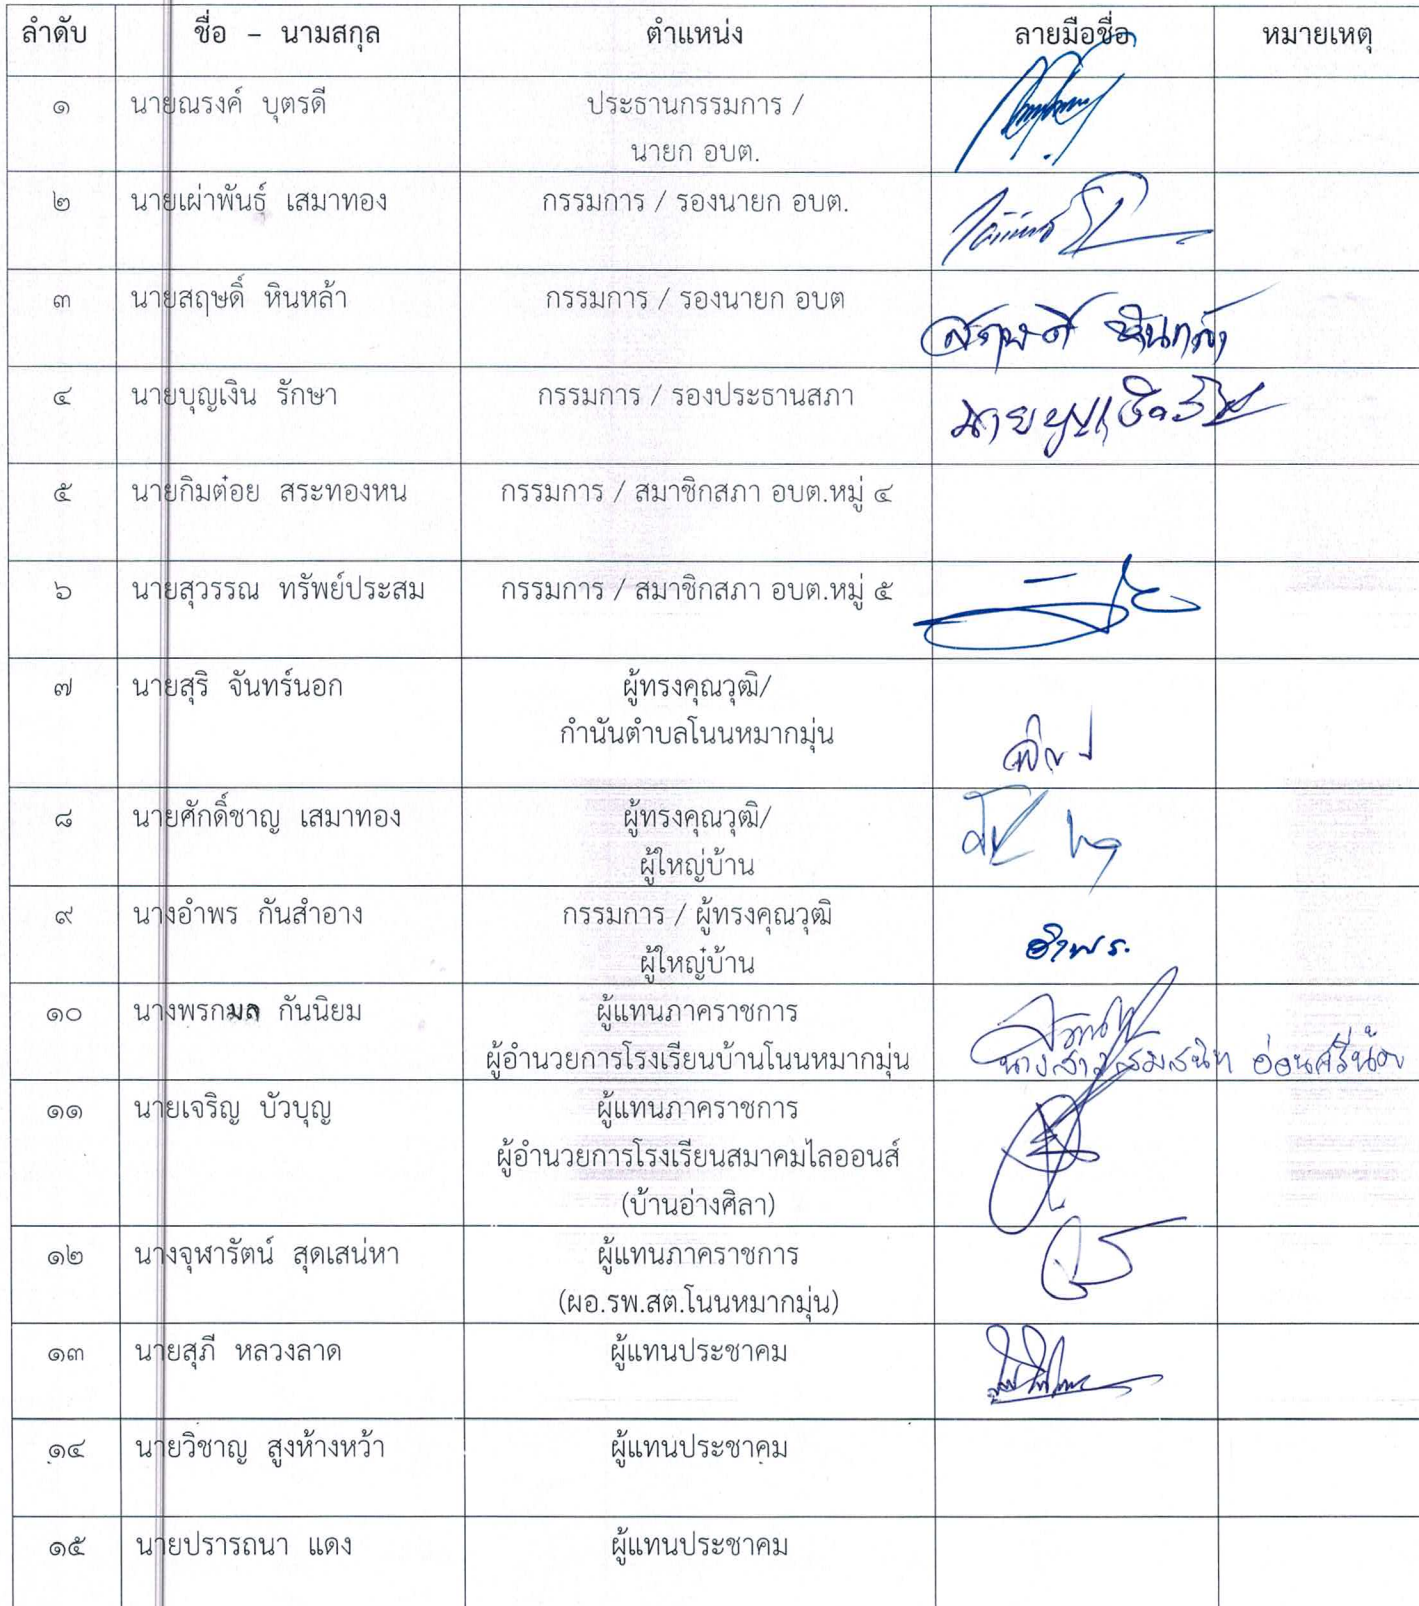 ลำดับ ชื่อ - นามสกุล ตำแหน่ง ลายมือชื่อ หมายเหตุ
๑ นายณรงค์ บุตรดี ประธานกรรมการ /
นายก อบต.
๒ นายเผ่าพันธุ์ เสมาทอง กรรมการ / รองนายก อบต.
๓ นายสฤษดิ์ หินหล้า กรรมการ / รองนายก อบต
สฤษดิ์ หินหล้า
๔ นายบุญเงิน รักษา กรรมการ / รองประธานสภา
๕ นายกิมต๋อย สระทองหน กรรมการ / สมาชิกสภา อบต.หมู่ ๔
๖ นายสุวรรณ ทรัพย์ประสม กรรมการ / สมาชิกสภา อบต.หมู่ ๕
๗ นายสุริ จันทร์นอก ผู้ทรงคุณวุฒิ/
กำนันตำบลโนนหมากมุ่น
๘ นายศักดิ์ชาญ เสมาทอง ผู้ทรงคุณวุฒิ/
ผู้ใหญ่บ้าน
๙ นางอำพร กันสำอาง กรรมการ / ผู้ทรงคุณวุฒิ
อำพร.
ผู้ใหญ่บ้าน
๑๐ นางพรกมล กันนิยม ผู้แทนภาคราชการ
ผู้อำนวยการโรงเรียนบ้านโนนหมากมุ่น นางสาวสมสนิท อ่อนศรีน้อย
๑๑ นายเจริญ บัวบุญ ผู้แทนภาคราชการ
ผู้อำนวยการโรงเรียนสมาคมไลออนส์
(บ้านอ่างศิลา)
๑๒ นางจุฬารัตน์ สุดเสน่หา ผู้แทนภาคราชการ
(ผอ.รพ.สต.โนนหมากมุ่น)
๑๓ นายสุภี หลวงลาด ผู้แทนประชาคม
๑๔ นายวิชาญ สูงห้างหว้า ผู้แทนประชาคม
๑๕ นายปรารถนา แดง ผู้แทนประชาคม